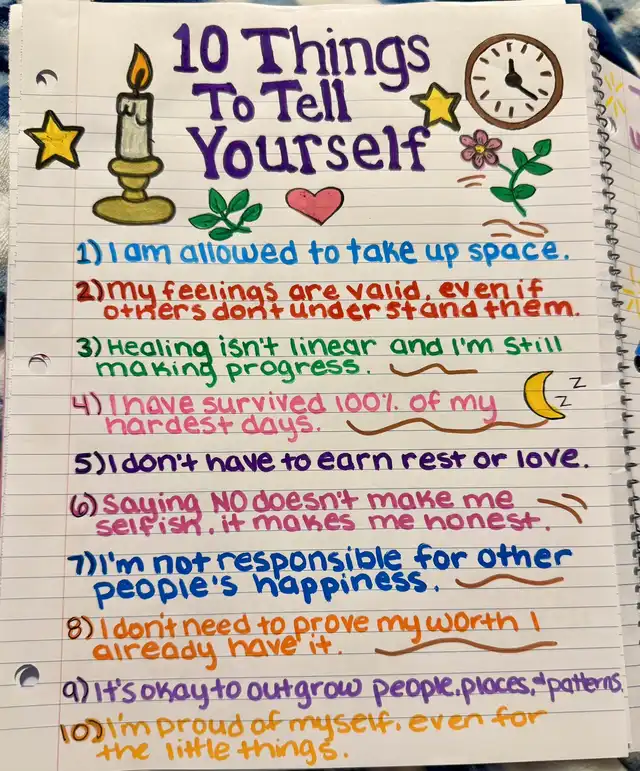 10 Things
To Tell
Yourself
1) I am allowed to take up space.
2) my feelings are valid, even if
others don't understand them.
3) Healing isn't linear and I'm still
making progress.
4) I have survived 100% of my
hardest days.
z
z
5) I don't have to earn rest or love.
6) Saying NO doesn't make me
selfish, it makes me honest.
7) I'm not responsible for other
people's happiness.
8) I don't need to prove my worth I
already have it.
9) It's okay to outgrow people, places, + patterns.
10) I'm proud of myself, even for
the little things.